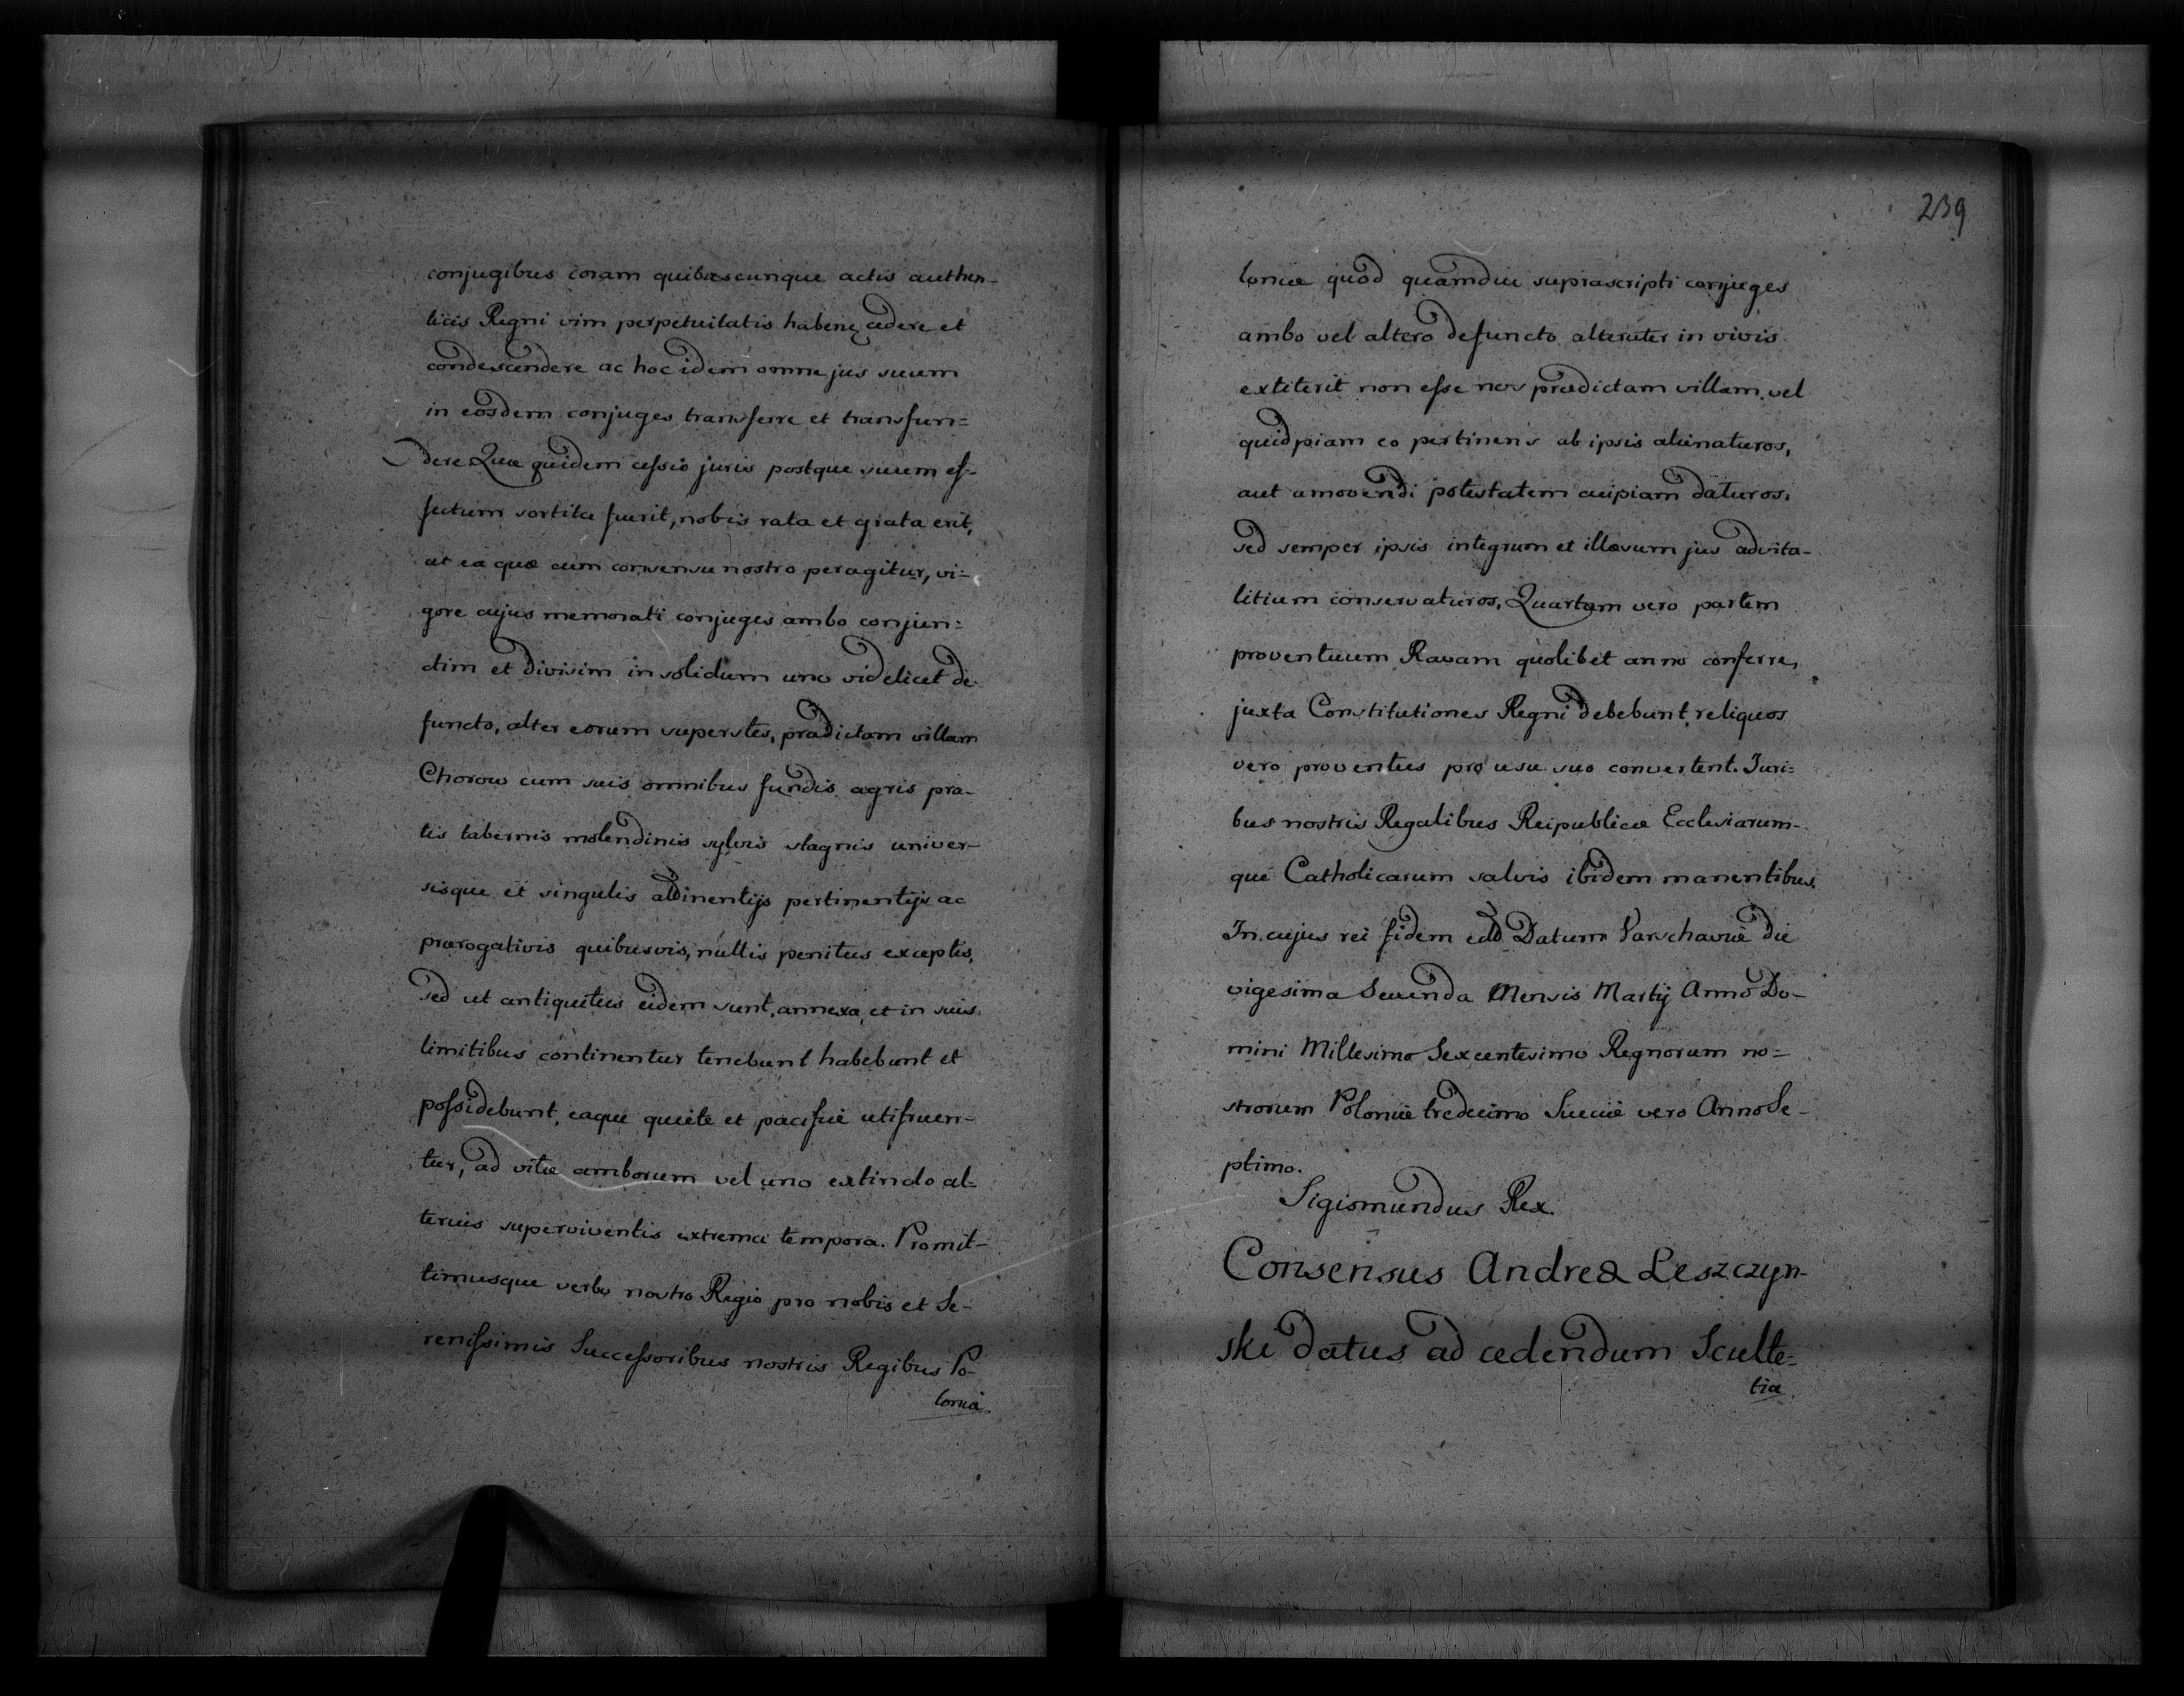 conjugibus coram quibuscunque actis authen-
ticis Regni vim perpetuitatis haben: cedere et
condescendere ac hoc idem omne jus suum
in eosdem conjuges transferre et transfun=
dere Quæ quidem cessio juris postque suum ef-
fectum sortita fuerit, nobis rata et grata erit,
ut ea quæ cum consensu nostro peragitur, vi=
gore cujus memorati conjuges ambo conjun=
ctim et divisim in solidum uno videlicet de
functo, alter eorum superstes, prædictam villam
Chorow cum suis omnibus fundis agris pra-
tis tabernis molendinis sylvis stagnis univer-
sisque et singulis attinentijs pertinentijs ac
prærogativis quibusvis, nullis penitus exceptis,
sed ut antiquitus eidem sunt, annexa, et in suis
limitibus continentur tenebunt habebunt et
possidebunt, eaque quiete et pacifice utifruen-
tur, ad vitæ amborum vel uno extincto al=
terius superviventis extrema tempora. Promit-
timusque verbo nostro Regio pro nobis et Se-
renissimis Successoribus nostris Regibus Po-
loniæ
239
loniæ quod quamdiu suprascripti conjuges
ambo vel altero defuncto alteruter in vivis
extiterit non esse nos prædictam villam, vel
quidpiam eo pertinens ab ipsis alienaturos,
aut amovendi potestatem cuipiam daturos.
sed semper ipsis integrum et illæsum jus advita-
litium conservaturos, Quartam vero partem
proventuum Ravam quolibet anno conferre,
juxta Constitutiones Regni debebunt, reliquos
vero proventus pro usu suo convertent. Juri=
bus nostris Regalibus Reipublicæ Ecclesiarum-
que Catholicarum salvis ibidem manentibus.
In cujus rei fidem Datum Varschaviæ die
vigesima Secunda Mensis Martij Anno Do-
mini Millesimo Sexcentesimo Regnorum no=
strorum Poloniæ tredecimo Sueciæ vero Anno Se-
ptimo.
Sigismundus Rex.
Consensus Andreæ Leszczyn-
ski datus ad cedendum Sculte=
tiæ